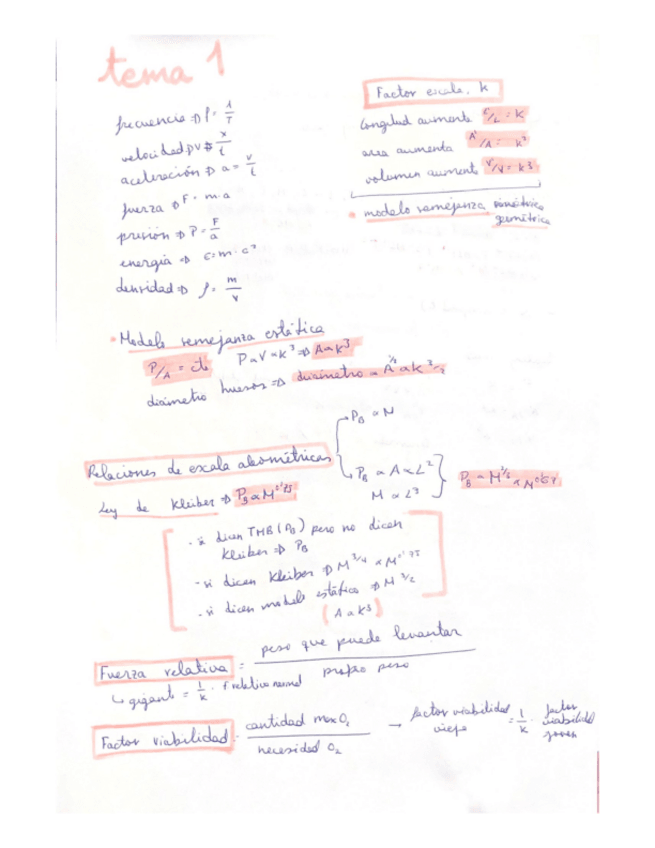 tema 1
frecuencia ⇒ f = 1/T
velocidad ⇒ v = x/t
aceleración ⇒ a = v/t
fuerza ⇒ F = m·a
presión ⇒ P = F/a
energía ⇒ E = m·c²
densidad ⇒ ρ = m/V
Factor escala, k
longitud aumenta L'/L = k
area aumenta A'/A = k²
volumen aumenta V'/V = k³
• modelo semejanza
geométrica
• Modelo semejanza estática
P/A = cte P∝V∝k³ ⇒ A∝k³
diámetro huesos ⇒ diámetro ∝ A^1/2 ∝ k^3/2
Relaciones de escala alométricas
P_B ∝ M
P_B ∝ A ∝ L²
M ∝ L³
P_B ∝ M^2/3 ∝ M^0'67
Ley de Kleiber ⇒ P_B ∝ M^0'75
- si dicen TMB (P_B) pero no dicen
Kleiber ⇒ P_B
- si dicen Kleiber ⇒ M^3/4 ∝ M^0'75
- si dicen modelo estático ⇒ M
(A∝k³)
Fuerza relativa = peso que puede levantar / propio peso
↳ gigante = 1/k · F relativa normal
Factor viabilidad = cantidad max O₂ / necesidad O₂ → factor viabilidad viejo = 1/k · factor viabilidad joven